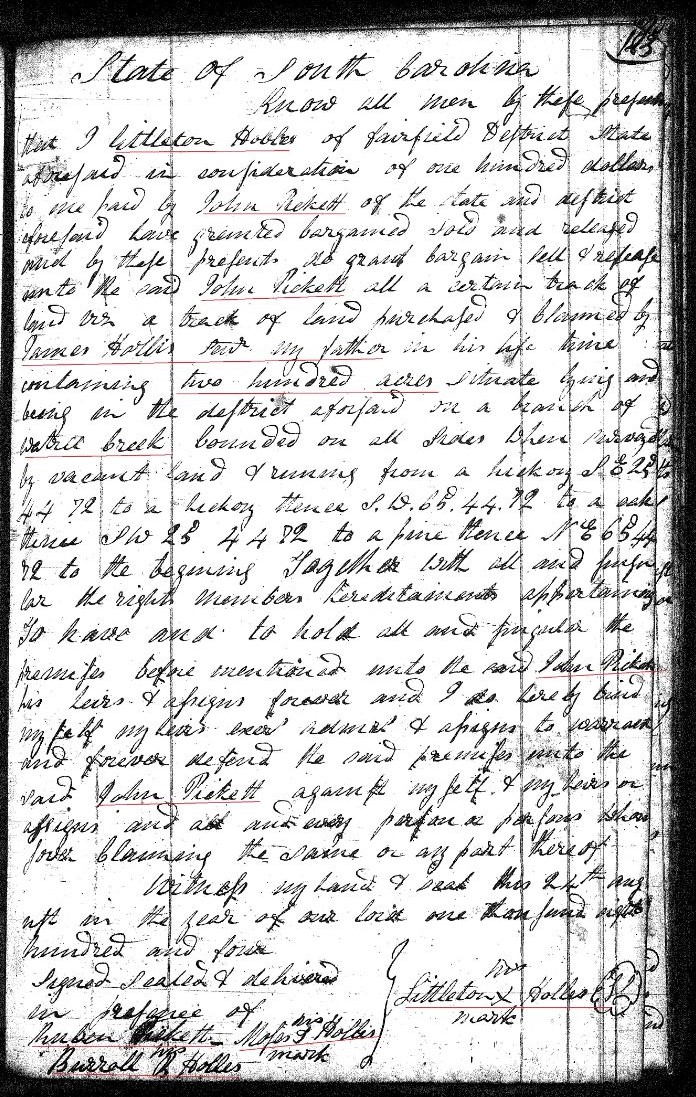 123
State of South Carolina
Know all men by these presents
that I Littleton Hollis of fairfield District State
aforesaid in consideration of one hundred dollars
to me paid by John Pickett of the state and destrict
aforesaid have granted bargained sold and released
and by these presents do grant bargain sell & release
unto the said John Pickett all a certain track of
land viz a track of land purchased & Claimed by
James Hollis my father in his life time
containing two hundred acres situate lying and
being in the destrict aforsaid on a branch of
Creek bounded on all sides when
by vacant land & runing from a hickory S E 25
44 72 to a hickory thence S. W. 65. 44. 72 to a oak
thence S W 25 44 72 to a pine thence N E 65 44
72 to the begining Together with all and singu
lar the rights members hereditaments appertaining
To have and to hold all and singular the
premises before mentioned unto the said John Pickett
his heirs & assigns forever and I do hereby bind
my self my heirs exers admrs & assigns to warrant
and forever defend the said premises unto the
said John Pickett against my self & my heirs or
assigns and all and every person or persons whom
sover Claiming the same or any part thereof
Witness my hand & seal this 24th aug
ust in the year of our lord one thousand eight
hundred and four
Signed Sealed & delivered
in presence of
his
Littleton X Hollis
mark
Ruben Pickett Moses his Hollis
mark
Burrell Hollis